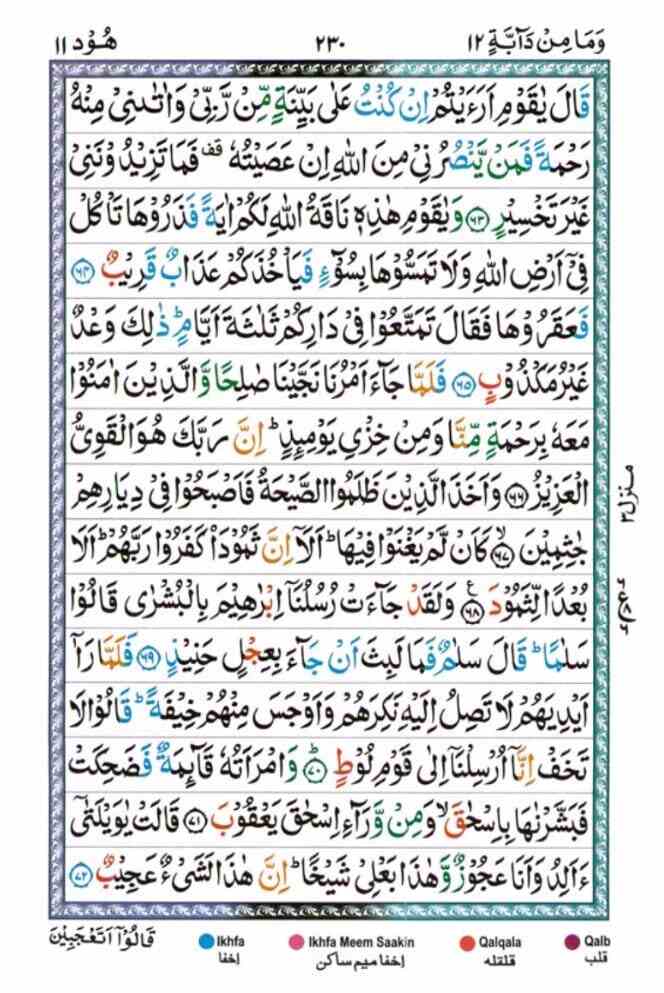 وَمَا مِنْ دَآبَّةٍ ١٢ ٢٣٠ هُوْد ١١
قَالَ يٰقَوْمِ اَرَءَيْتُمْ اِنْ كُنْتُ عَلٰى بَيِّنَةٍ مِّنْ رَّبِّىْ وَاٰتٰىنِىْ مِنْهُ
رَحْمَةً فَمَنْ يَّنْصُرُنِىْ مِنَ اللّٰهِ اِنْ عَصَيْتُهٗ قف فَمَا تَزِيْدُوْنَنِىْ
غَيْرَ تَخْسِيْرٍ ﴿٦٣﴾ وَيٰقَوْمِ هٰذِهٖ نَاقَةُ اللّٰهِ لَكُمْ اٰيَةً فَذَرُوْهَا تَاْكُلْ
فِىْۤ اَرْضِ اللّٰهِ وَلَا تَمَسُّوْهَا بِسُوْٓءٍ فَيَاْخُذَكُمْ عَذَابٌ قَرِيْبٌ ﴿٦٤﴾
فَعَقَرُوْهَا فَقَالَ تَمَتَّعُوْا فِىْ دَارِكُمْ ثَلٰثَةَ اَيَّامٍ ؕ ذٰلِكَ وَعْدٌ
غَيْرُ مَكْذُوْبٍ ﴿٦٥﴾ فَلَمَّا جَآءَ اَمْرُنَا نَجَّيْنَا صٰلِحًا وَّالَّذِيْنَ اٰمَنُوْا
مَعَهٗ بِرَحْمَةٍ مِّنَّا وَمِنْ خِزْىِ يَوْمِئِذٍ ؕ اِنَّ رَبَّكَ هُوَ الْقَوِىُّ
الْعَزِيْزُ ﴿٦٦﴾ وَاَخَذَ الَّذِيْنَ ظَلَمُوا الصَّيْحَةُ فَاَصْبَحُوْا فِىْ دِيَارِهِمْ
جٰثِمِيْنَ ﴿٦٧﴾ ۙ كَاَنْ لَّمْ يَغْنَوْا فِيْهَا ؕ اَلَاۤ اِنَّ ثَمُوْدَا۟ كَفَرُوْا رَبَّهُمْ ؕ اَلَا
بُعْدًا لِّثَمُوْدَ ﴿٦٨﴾ ع وَلَقَدْ جَآءَتْ رُسُلُنَاۤ اِبْرٰهِيْمَ بِالْبُشْرٰى قَالُوْا
سَلٰمًا ؕ قَالَ سَلٰمٌ فَمَا لَبِثَ اَنْ جَآءَ بِعِجْلٍ حَنِيْذٍ ﴿٦٩﴾ فَلَمَّا رَاٰۤ
اَيْدِيَهُمْ لَا تَصِلُ اِلَيْهِ نَكِرَهُمْ وَاَوْجَسَ مِنْهُمْ خِيْفَةً ؕ قَالُوْا لَا
تَخَفْ اِنَّاۤ اُرْسِلْنَاۤ اِلٰى قَوْمِ لُوْطٍ ﴿٧٠﴾ ؕ وَامْرَاَتُهٗ قَآئِمَةٌ فَضَحِكَتْ
فَبَشَّرْنٰهَا بِاِسْحٰقَ ۙ وَمِنْ وَّرَآءِ اِسْحٰقَ يَعْقُوْبَ ﴿٧١﴾ قَالَتْ يٰوَيْلَتٰٓى
ءَاَلِدُ وَاَنَا عَجُوْزٌ وَّهٰذَا بَعْلِىْ شَيْخًا ؕ اِنَّ هٰذَا لَشَىْءٌ عَجِيْبٌ ﴿٧٢﴾
منزل ٣
قَالُوْۤا اَتَعْجَبِيْنَ
Ikhfa Ikhfa Meem Saakin Qalqala Qalb
اخفا اخفا میم ساکن قلقله قلب